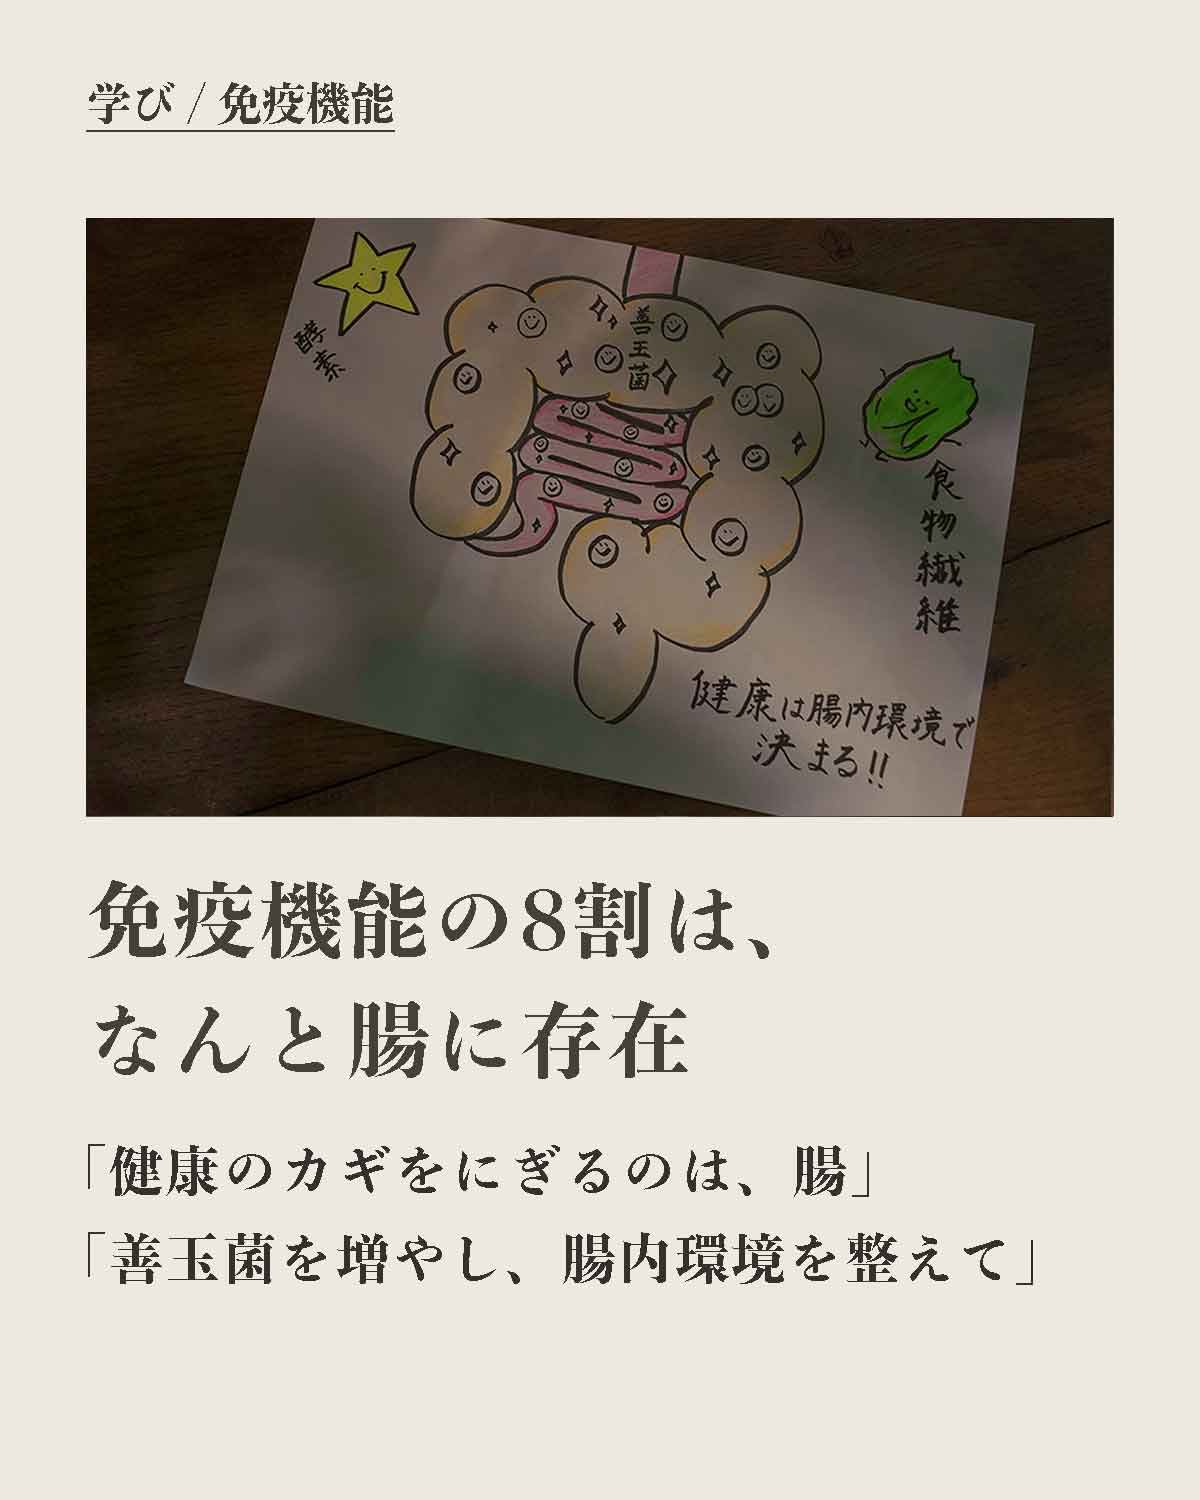 学び / 免疫機能
酵素
善玉菌
食物繊維
健康は腸内環境で
決まる!!
免疫機能の8割は、
なんと腸に存在
「健康のカギをにぎるのは、腸」
「善玉菌を増やし、腸内環境を整えて」